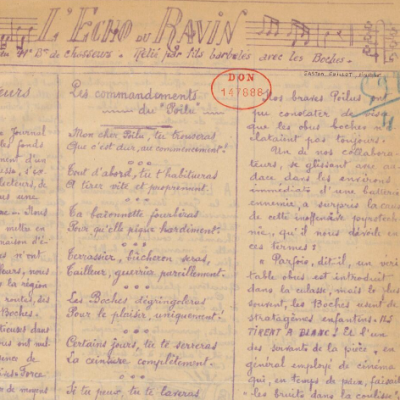 L'ECHO DU RAVIN
Bon de chasseurs. Relié par fils barbelés avec les Boches.
DON
147688
eurs
Journal
fonds
lecteurs, de
une
mettre en
n'ont
nous
la région
Boches.
ont
Les commandements
du "Poilu"
Mon cher Poilu, tu trouveras
Que c'est dur, au commencement!
Tout d'abord, tu t'habitueras
A tirer vite et proprement.
Ta baïonnette fourbiras
Pour qu'elle pique hardiment.
Terrassier, bûcheron seras,
Tailleur, guerrier pareillement.
Les Boches dégringoleras
Pour le plaisir, uniquement!
Certains jours, tu te serreras
La ceinture complètement.
Si tu peux, tu te laveras
Nos braves Poilus ont
pu constater de visu
que les obus boches n'é
clataient pas toujours.
Un de nos collabora-
teurs, se glissant avec au-
dace dans les environs
immédiats d'une batterie
ennemie, a surpris la cause
de cette inoffensive pyrotech-
nie, qu'il nous dévoile en
ces termes:
" Parfois, dit-il, un véri
table obus est introduit
dans la culasse, mais le plus
souvent, les Boches usent de
stratagèmes enfantins. ILS
TIRENT A BLANC! Et l'un
des servants de la pièce, en
général employé de cinéma
qui, en temps de paix, faisait
"les bruits dans la coulisse"